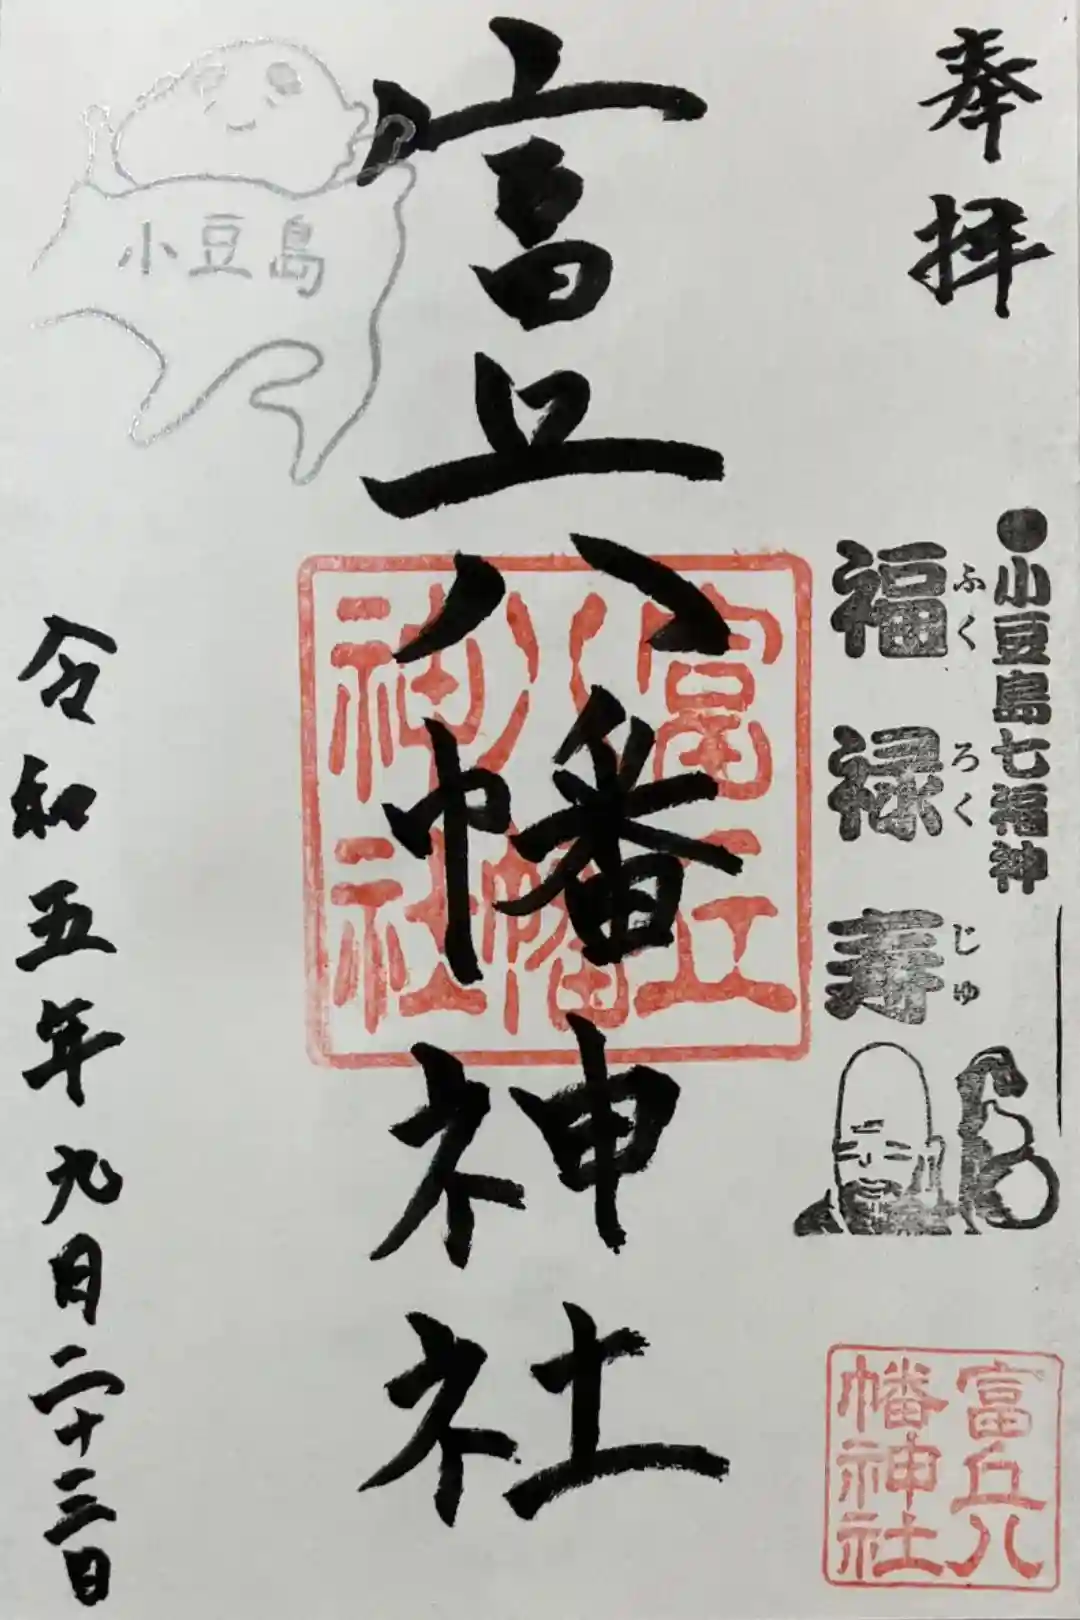 奉拝
●小豆島七福神
福禄寿
ふくろくじゅ
富丘八幡神社
富丘八幡神社
富丘八幡神社
小豆島
令和五年九月二十三日